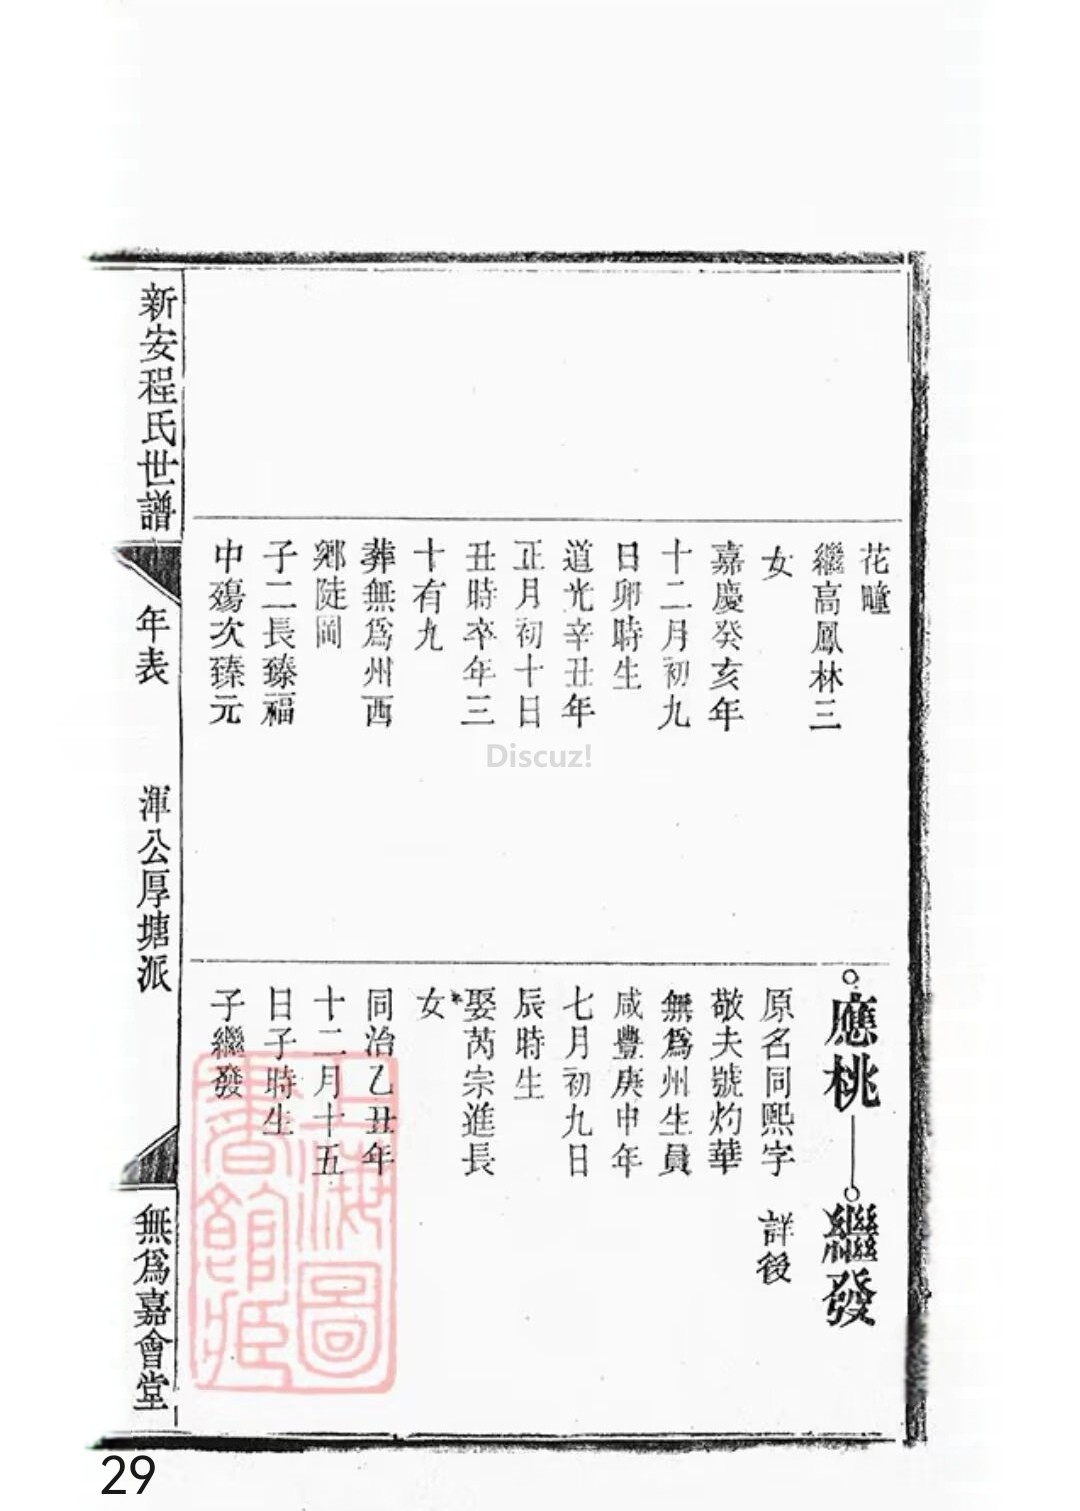 花疃
繼高鳳林三
女
嘉慶癸亥年
十二月初九
日卯時生
道光辛丑年
正月初十日
丑時卒年三
十有九
葬無爲州西
鄉陡岡
子二長臻福
中殤次臻元
應桃
繼發
原名同熙字
詳後
敬夫號灼華
無爲州生員
咸豐庚申年
七月初九日
辰時生
娶芮宗進長
女
同治乙丑年
十二月十五
日子時生
子繼發
新安程氏世譜
年表
渾公厚塘派
無爲嘉會堂
上海圖
書館藏
Discuz!
29